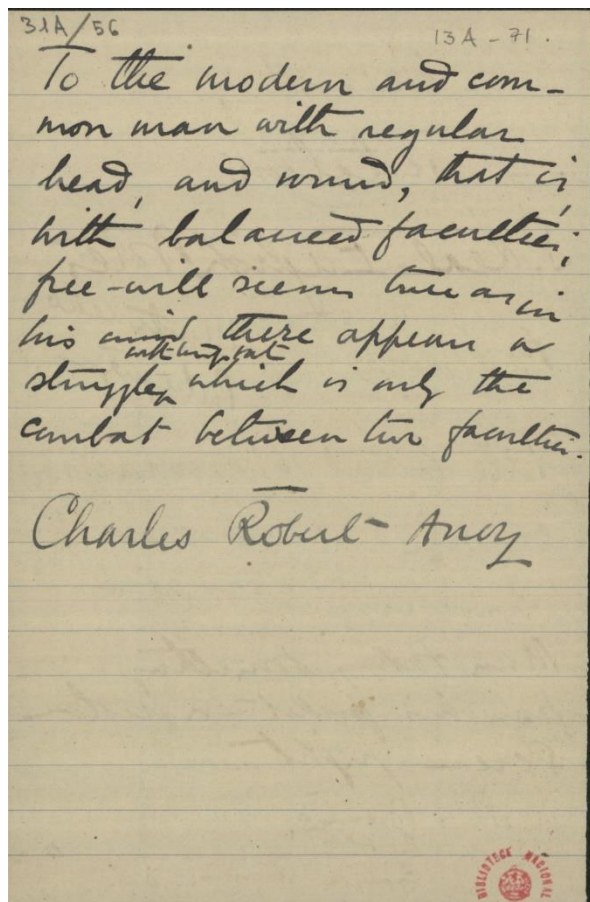 31A/56
13A - 71.
To the modern and com-
mon man with regular
head, and round, that is,
with balanced faculties,
free-will seems true as in
his mind there appears a
without
struggle, which is only the
combat between two faculties.
Charles Robert Anon
BIBLIOTECA NACIONAL